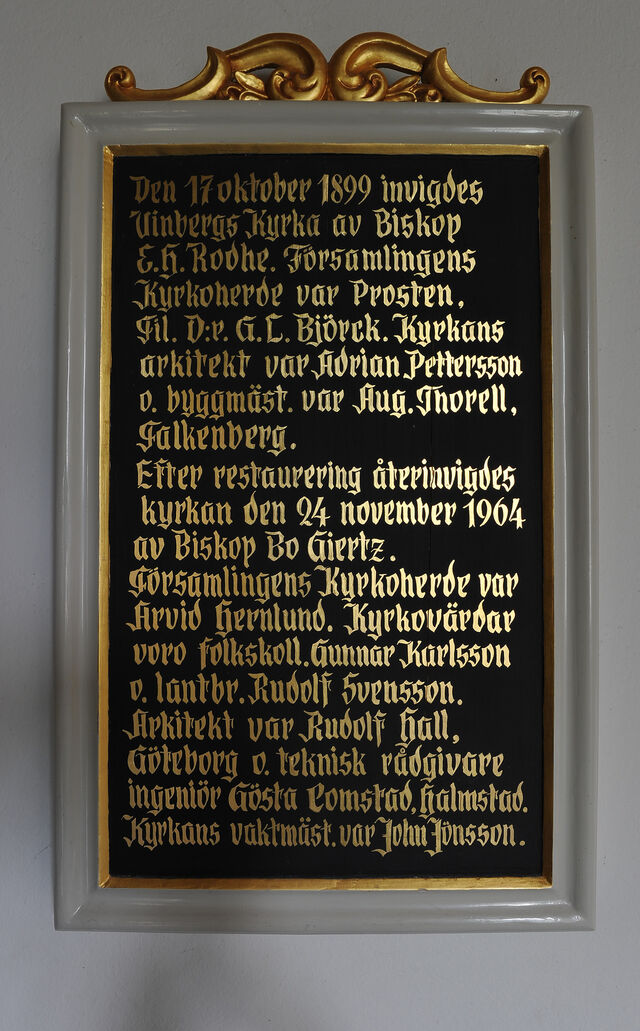 Den 17 oktober 1899 invigdes
Vinbergs Kyrka av Biskop
E.H. Rodhe. Församlingens
Kyrkoherde var Prosten,
Fil. D:r. G.L. Björck. Kyrkans
arkitekt var Adrian Pettersson
o. byggmäst. var Aug. Thorell,
Falkenberg.
Efter restaurering återinvigdes
kyrkan den 24 november 1964
av Biskop Bo Giertz.
Församlingens Kyrkoherde var
Arvid Hernlund. Kyrkovärdar
voro folkskoll. Gunnar Karlsson
o. lantbr. Rudolf Svensson.
Arkitekt var Rudolf Hall,
Göteborg o. teknisk rådgivare
ingeniör Gösta Comstad, Halmstad.
Kyrkans vaktmäst. var John Jönsson.